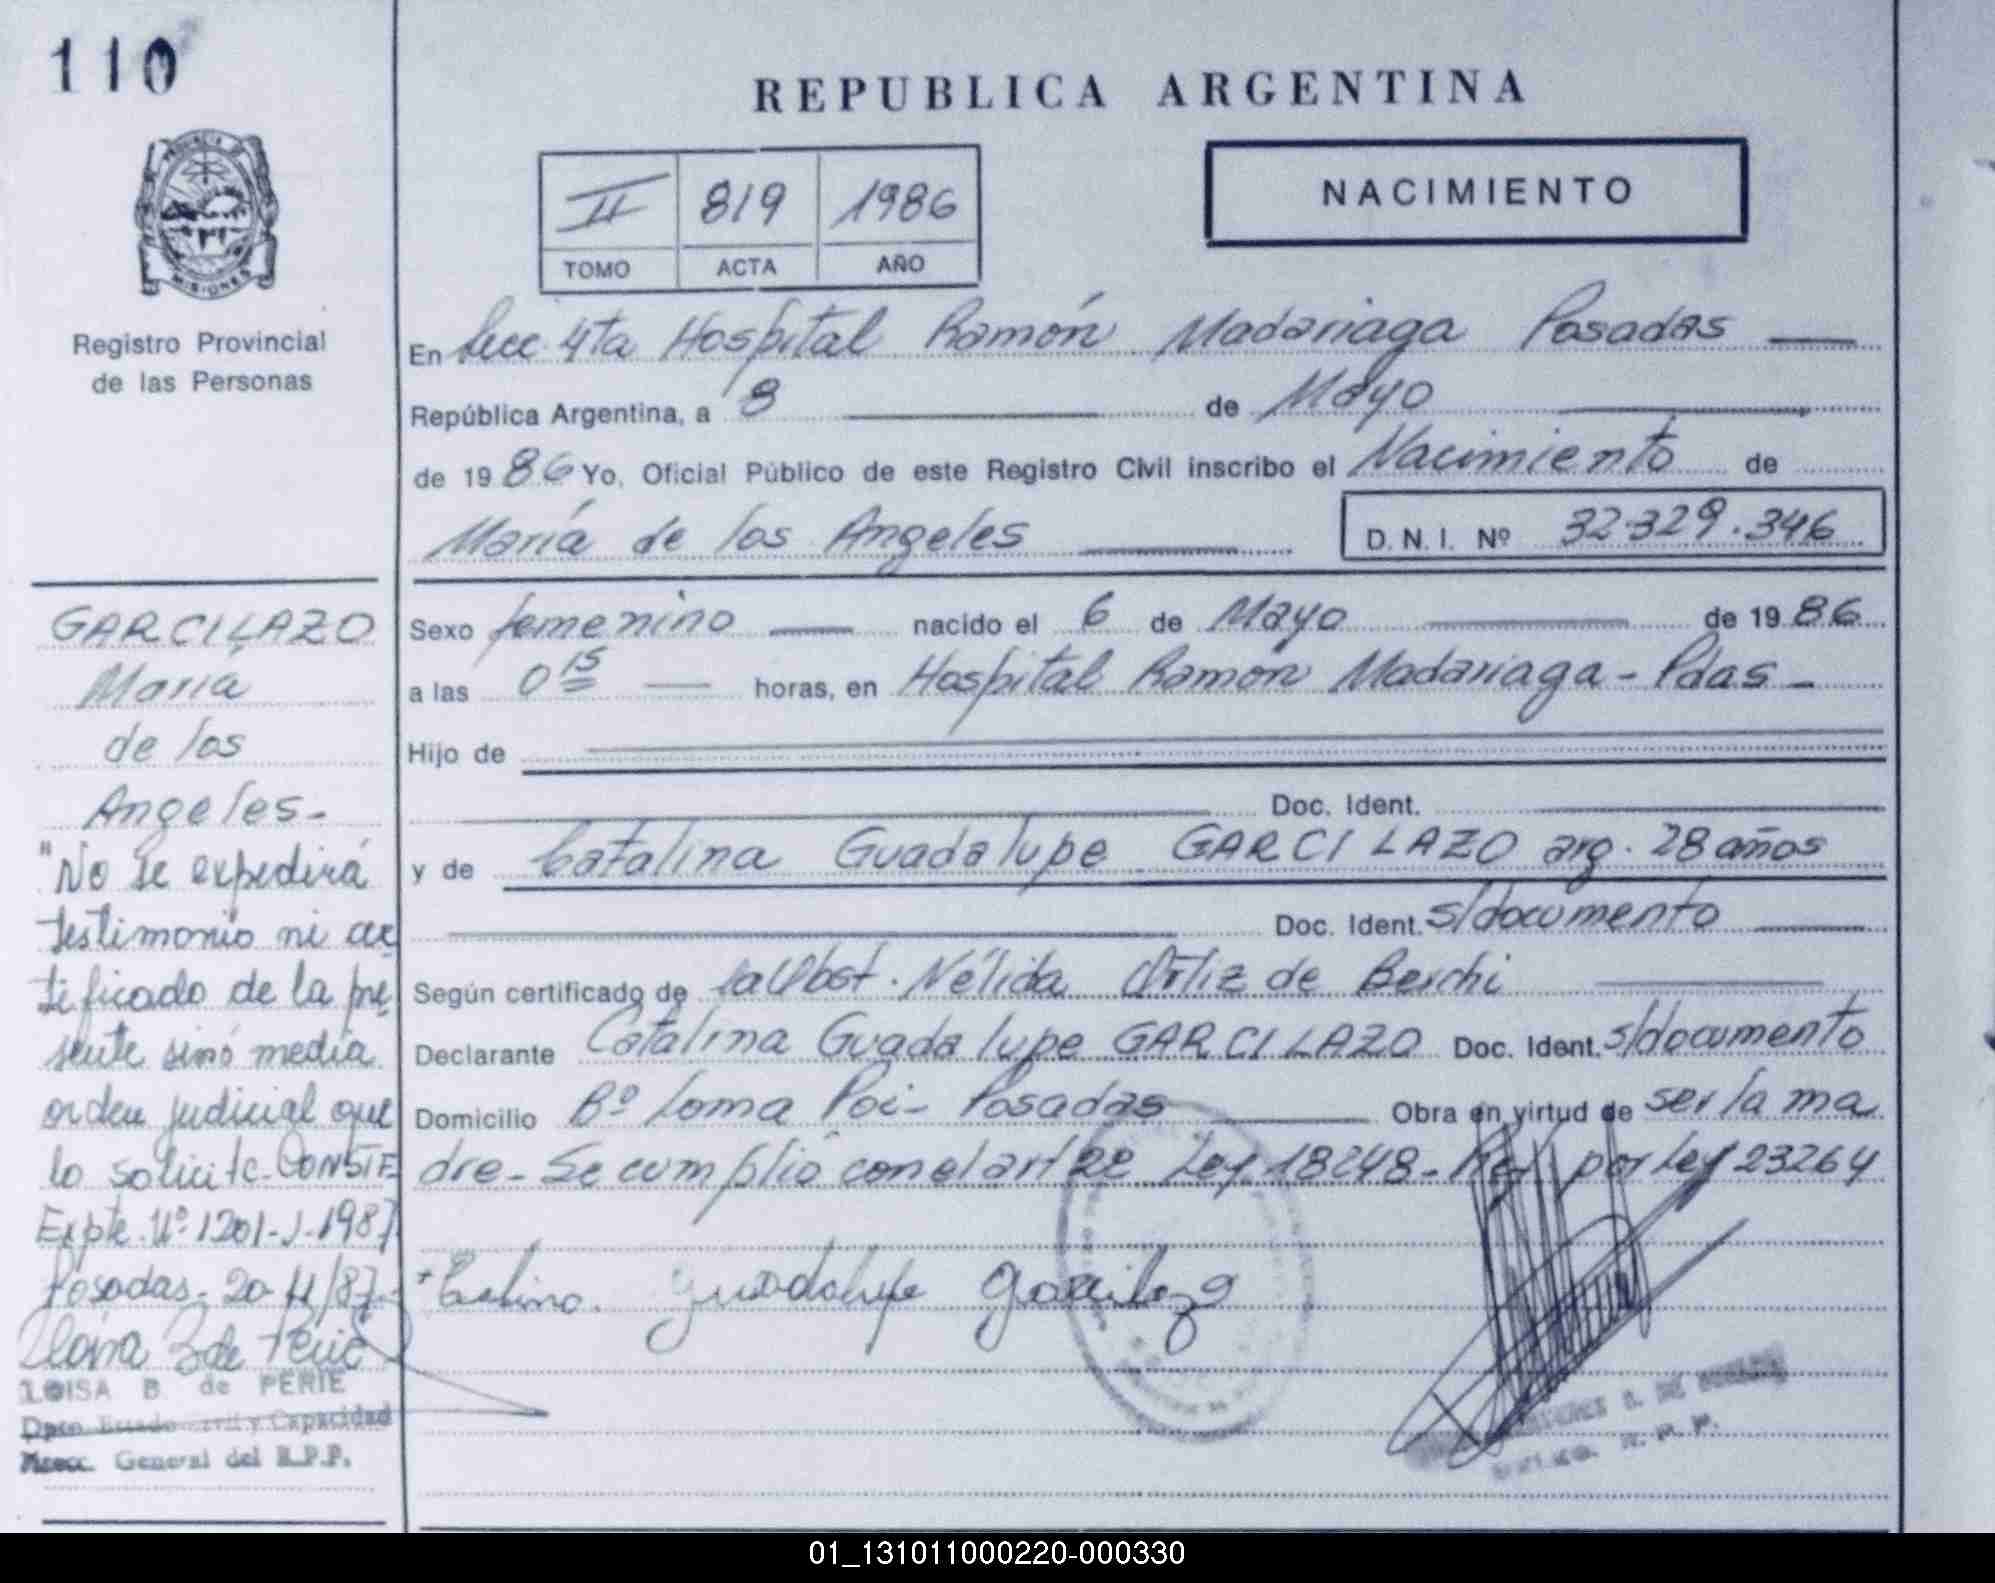 110
PROVINCIA DE
MISIONES
Registro Provincial
de las Personas
REPUBLICA ARGENTINA
II 819 1986
TOMO ACTA AÑO
NACIMIENTO
En Secc 4ta Hospital Ramón Madariaga Posadas
República Argentina, a 8 de Mayo
de 1986 Yo, Oficial Público de este Registro Civil inscribo el Nacimiento de
María de los Angeles D. N. I. Nº 32.329.346
Sexo femenino nacido el 6 de Mayo de 1986
a las 0 15 horas, en Hospital Ramón Madariaga - Pdas -
Hijo de
Doc. Ident.
y de Catalina Guadalupe GARCILAZO arg. 28 años
Doc. Ident. s/documento
Según certificado de la Obst. Nélida Ortiz de Berchi
Declarante Catalina Guadalupe GARCILAZO Doc. Ident. s/documento
Domicilio Bº Loma Poi - Posadas Obra en virtud de ser la ma
dre - Se cumplió con el art 2º Ley 18248 - por Ley 23264
Guadalupe
GARCILAZO
María
de los
Angeles -
"No se expedirá
testimonio ni cer
tificado de la pre
sente sinó media
orden judicial que
lo solicite - CONSTE
Expte. Nº 1201-J-1987
Posadas - 20-11/87 -
LOISA B de PERIE
Dpto Estado Civil y Capacidad
General del R.P.P.
01_131011000220-000330